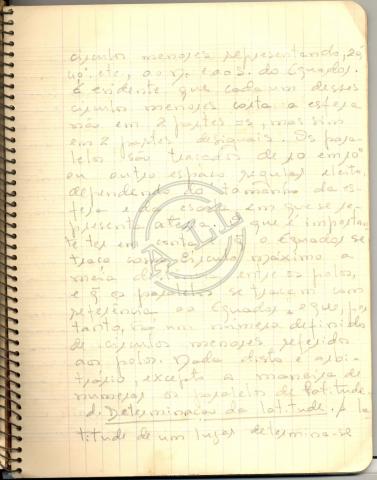 circulos menores representando, 20,
40°. etc, ao N. e ao S. do Equador.
É evidente que cada um desses
circulos menores corta a esfera
não em 2 partes =s, mas sim
em 2 partes desiguais. Os para-
lelos são traçados de 10 em 10°
ou outro espaço regular eleito,
dependendo do tamanho da es-
fera e da escala em que se re-
presenta a terra. O que é importan-
te ter em conta é q o Equador se
traça como circulo máximo a
meia distancia entre os polos,
e q̃ os paralelos se traçam com
referencia ao Equador, e que, por
tanto, são um número definido
de circulos menores referidos
aos polos. Nada disto é arbi-
trário, excepto a maneira de
numerar os paralelos de latitude.
d. Determinação da latitude. A la
titude de um lugar determina-se